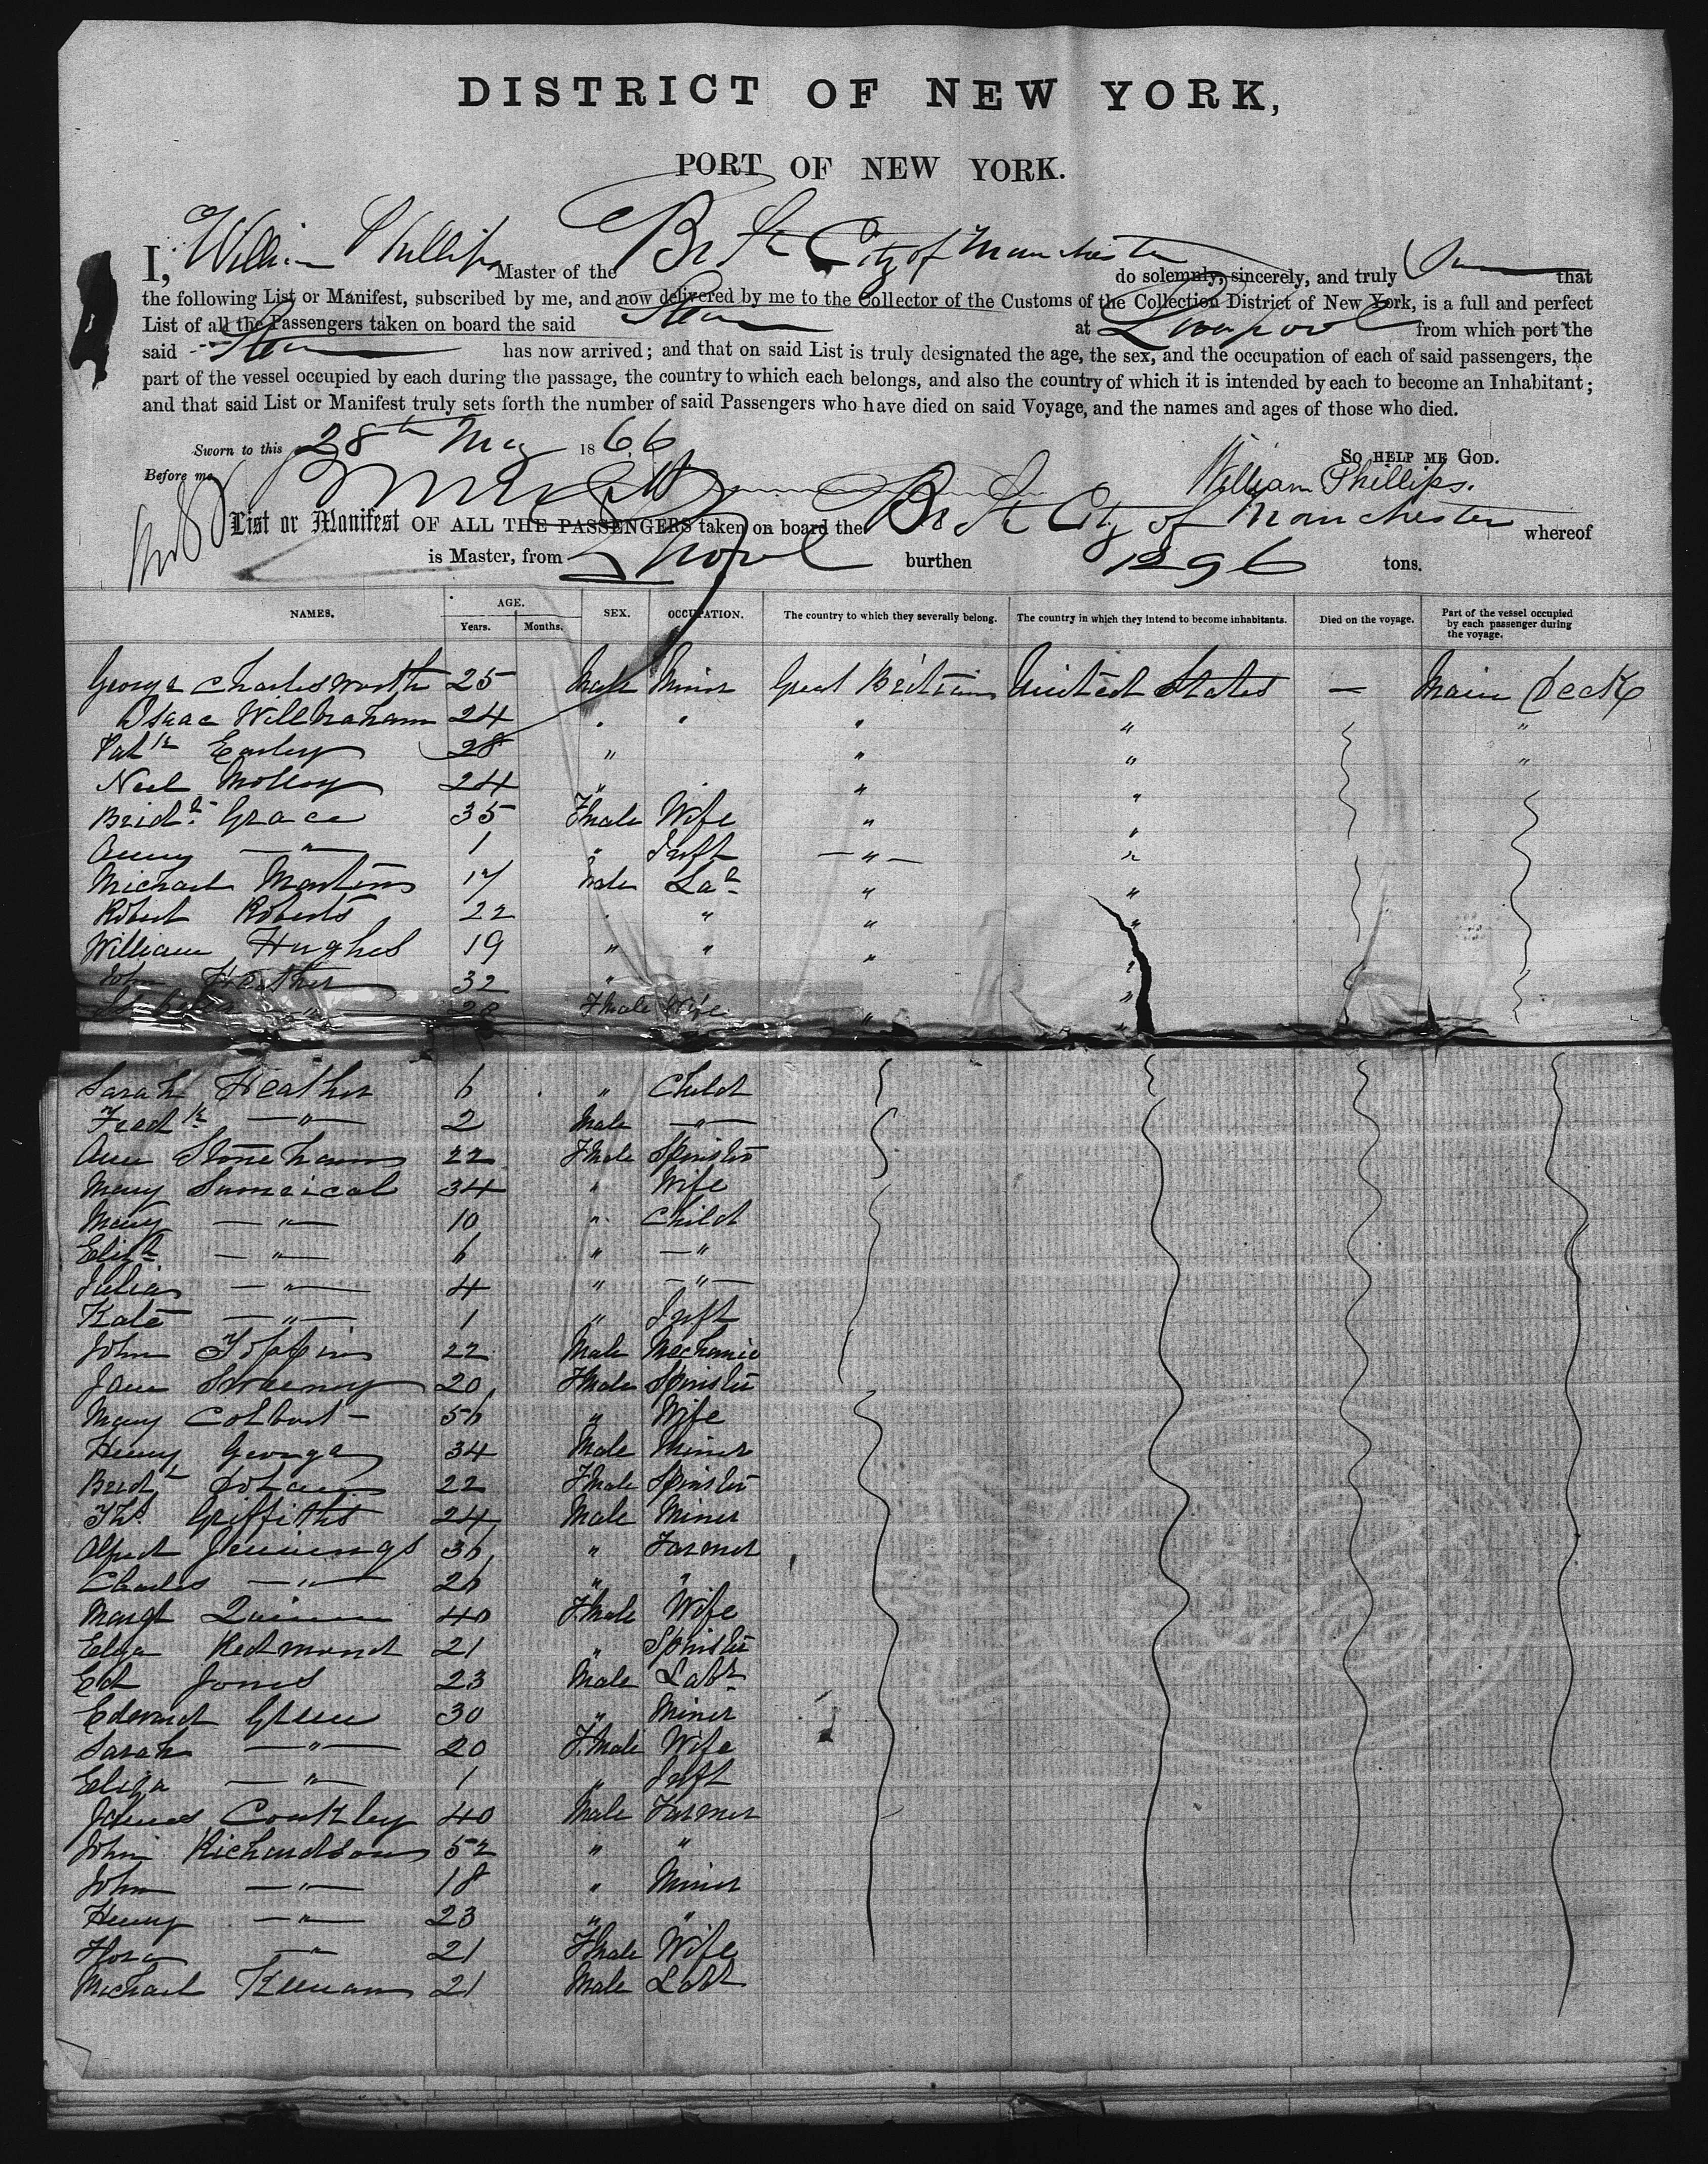 DISTRICT OF NEW YORK,
PORT OF NEW YORK.
I, William Phillips Master of the Br St City of Manchester do solemnly, sincerely, and truly that
the following List or Manifest, subscribed by me, and now delivered by me to the Collector of the Customs of the Collection District of New York, is a full and perfect
List of all the Passengers taken on board the said at Liverpool from which port the
said has now arrived; and that on said List is truly designated the age, the sex, and the occupation of each of said passengers, the
part of the vessel occupied by each during the passage, the country to which each belongs, and also the country of which it is intended by each to become an Inhabitant;
and that said List or Manifest truly sets forth the number of said Passengers who have died on said Voyage, and the names and ages of those who died.
Sworn to this 28th May 1866 SO HELP ME GOD.
Before me William Phillips.
List or Manifest OF ALL THE PASSENGERS taken on board the Br St City of Manchester whereof
is Master, from Lpool burthen 1296 tons.
NAMES. AGE. Years. Months. SEX. OCCUPATION. The country to which they severally belong. The country in which they intend to become inhabitants. Died on the voyage. Part of the vessel occupied by each passenger during the voyage.
George Charlesworth 25 Male Miner Great Britain United States — Main Deck
Isaac Wilbraham 24 " " " " "
Patk Earley 28 " " " "
Neil Molloy 24 " " "
Bridt Grace 35 Fmale Wife " "
Anny —"— 1 " Inft —"— "
Michael Martin 17 Male Labr " "
Robert Roberts 22 " " " "
William Hughes 19 " " " "
John Heather 32 " "
—"— 28 Fmale Wife " "
Sarah Heather 6 " Child
Fredk —"— 2 Male —"—
Ann Stoneham 22 Fmale Spinster
Mary 34 " Wife
Mary —"— 10 " Child
Elizh —"— 6 " —"
Julia —"— 4 " —"—
Kate —"— 1 " Inft
John 22 Male Mechanic
Jane Sweeney 20 Fmale Spinster
Mary Colbert 56 " Wife
Henry George 34 Male Miner
Bridt Dolan 22 Fmale Spinster
Ths Griffiths 24 Male Miner
Alfred Jennings 36 " Farmer
Charles —"— 26 " "
Margt Quinn 40 Fmale Wife
Eliza Redmond 21 " Spinster
Ed Jones 23 Male Labr
Edward Green 30 " Miner
Sarah —"— 20 Fmale Wife
Eliza —"— 1 " Inft
James Coakley 40 Male Farmer
John Richardson 52 " "
John —"— 18 " Miner
Henry —"— 23 " "
Flora —"— 21 Fmale Wife
Michael Keenan 21 Male Labr